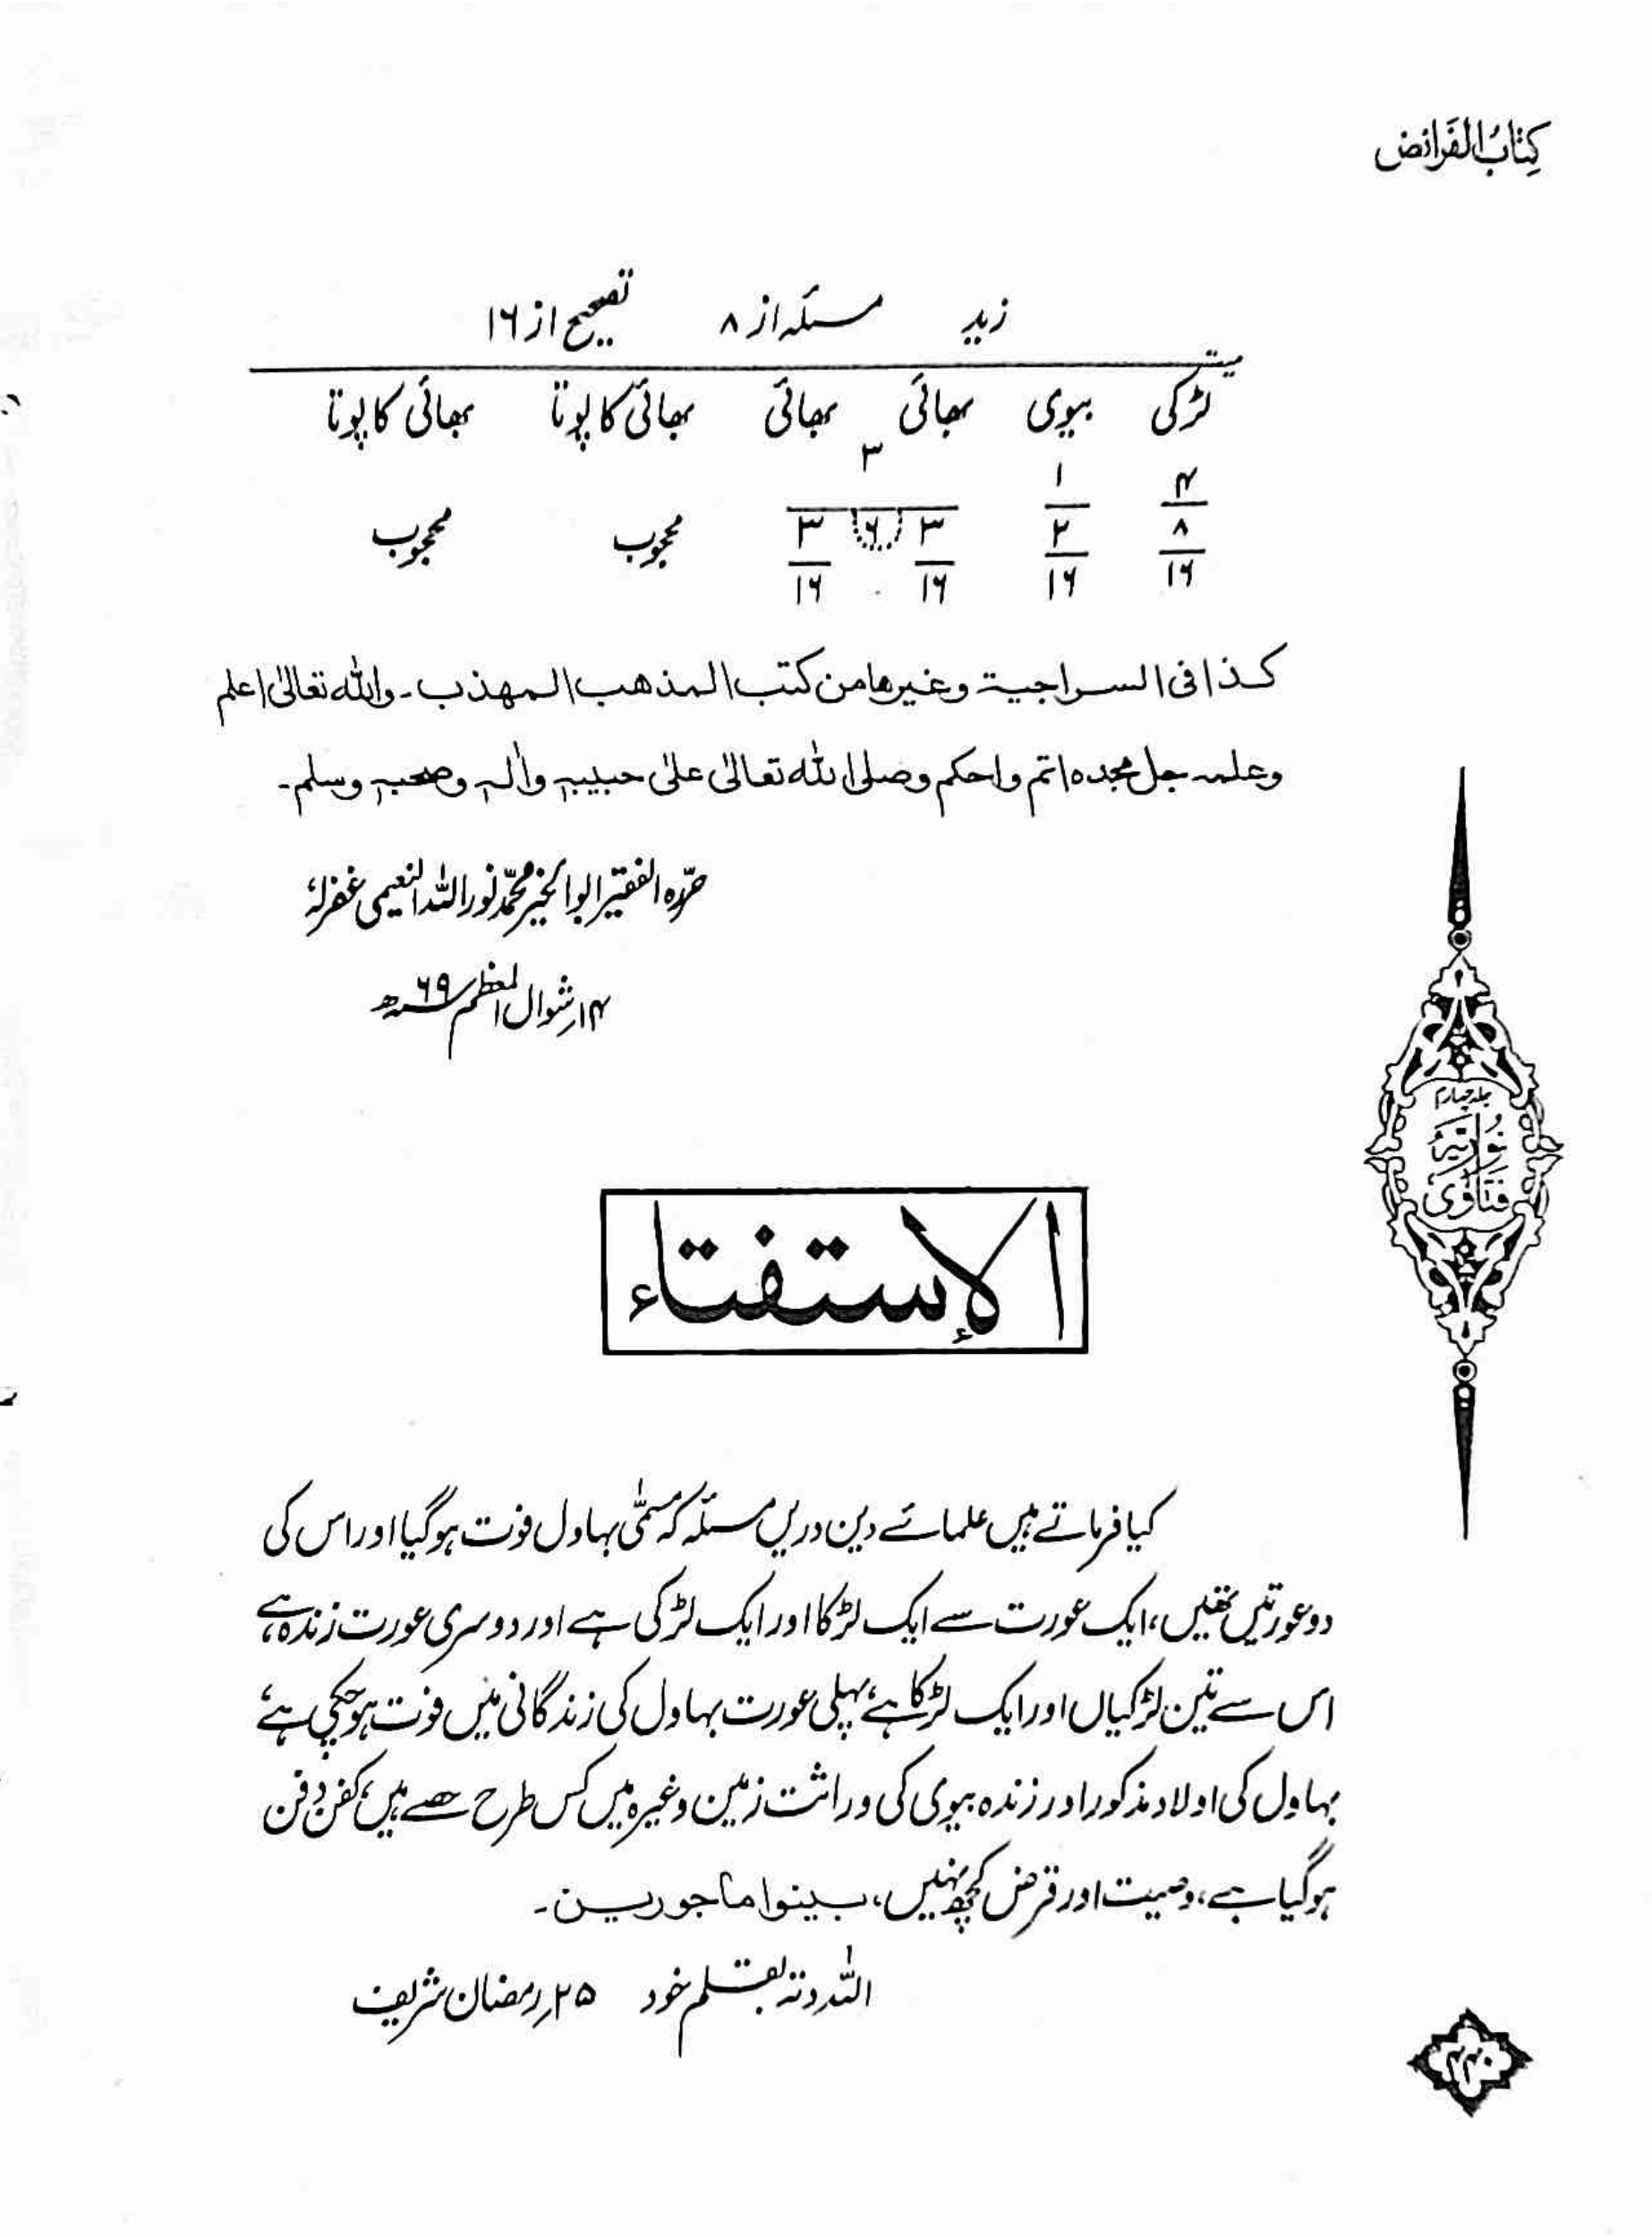 کِتَابُ الفَرائض
زید مسئلہ از ۸ تصحیح از ۱۶
میت
لڑکی بیوی بھائی بھائی بھائی کا پوتا بھائی کا پوتا
۴ ۱ ۳
۸ ۲ ۳ ۶ ۳ محجوب محجوب
۱۶ ۱۶ ۱۶ ۱۶
کذا فی السراجیۃ وغیرھا من کتب المذھب المھذب۔ واللہ تعالیٰ اعلم
وعلمہ جل مجدہ اتم واحکم وصلی اللہ تعالیٰ علیٰ حبیبہٖ واٰلہٖ وصحبہٖ وسلم۔
حرّرہ الفقیر ابوالخیر محمّد نور اللہ النعیمی غفرلہٗ
۱۴ ر شوال المعظم سنہ ۶۹ ھ
جلد چہارم
نُوریّہ
فتاوٰی
الإستفتاء
کیا فرماتے ہیں علمائے دین دریں مسئلہ کہ مسمّٰی بہاول فوت ہوگیا اور اس کی
دو عورتیں تھیں، ایک عورت سے ایک لڑکا اور ایک لڑکی ہے اور دوسری عورت زندہ ہے،
اس سے تین لڑکیاں اور ایک لڑکا ہے، پہلی عورت بہاول کی زندگانی میں فوت ہوچکی ہے،
بہاول کی اولاد مذکور اور زندہ بیوی کی وراثت زمین وغیرہ میں کس طرح حصے ہیں، کفن دفن
ہوگیا ہے، وصیت اور قرض کچھ نہیں، بینوا ماجورین۔
اللہ دتہ بقلم خود ۲۵ ر رمضان شریف